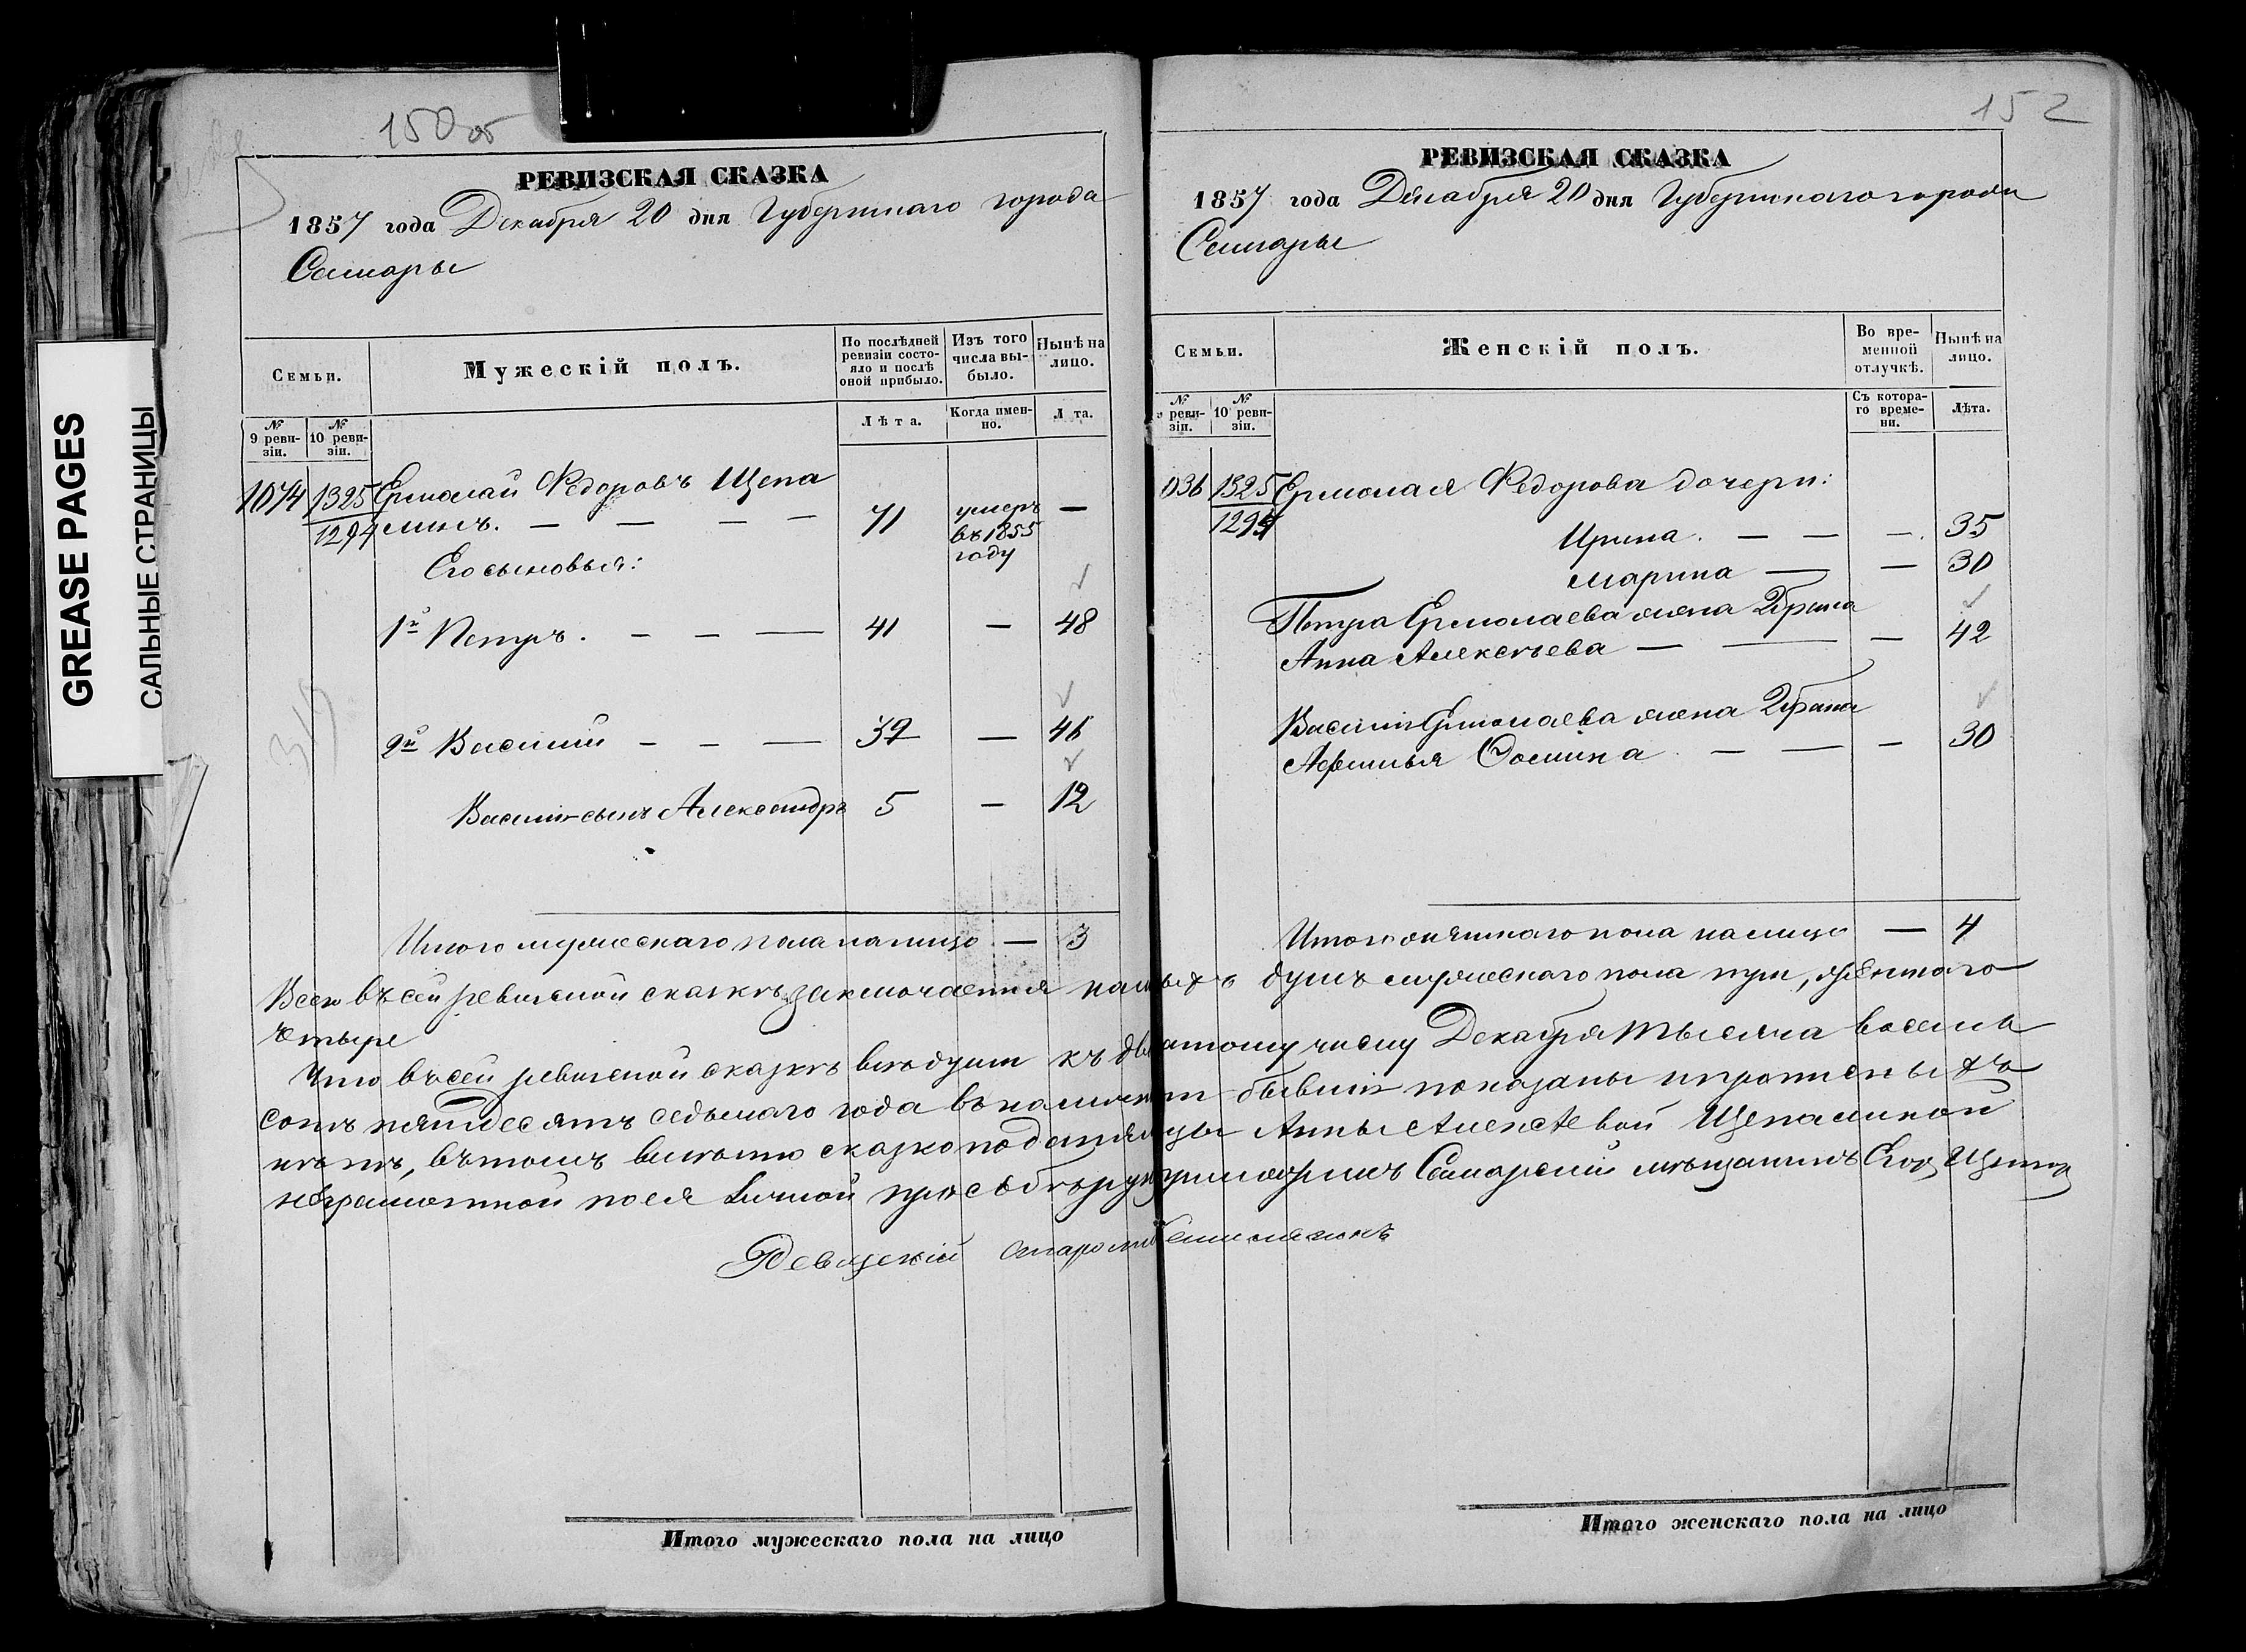 GREASE PAGES
САЛЬНЫЕ СТРАНИЦЫ
150 об
РЕВИЗСКАЯ СКАЗКА
1857 года Декабря 20 дня Губернскаго города
Самары
Семьи.
Мужескій полъ.
По послѣдней ревизіи состояло и послѣ оной прибыло.
Изъ того числа выбыло.
Нынѣ на лицо.
№ 9 ревизіи.
№ 10 ревизіи.
Лѣта.
Когда именно.
Л та.
1074 1325 Ермолай Федоровъ Щепа
1294 линъ. — — — — 71 умеръ въ 1855 году —
Его сыновья:
1й Петръ. — — — 41 — 48
2й Василій — — — 39 — 46
Василія сынъ Александръ 5 — 12
Итого мужескаго пола на лицо — 3
152
РЕВИЗСКАЯ СКАЗКА
1857 года Декабря 20 дня Губернскаго города
Самары
Семьи.
Женскій полъ.
Во временной отлучкѣ.
Нынѣ на лицо.
№ ревизіи.
№ 10 ревизіи.
Съ котораго времени.
Лѣта.
036 1325 Ермолая Федорова дочери:
1294
Ирина. — — — 35
Марина — — 30
Петра Ермолаева жена
Анна Алексѣева — — — 42
Василія Ермолаева жена
Афимья Фомина — — — 30
Итого женскаго пола на лицо — 4
Всего въ сей ревизской сказкѣ заключается душъ мужескаго пола три, женскаго
четыре
Что въ сей ревизской сказкѣ всѣ души къ числу Декабря тысяча восемь
сотъ пятьдесятъ седьмаго года въ бывшія показаны и
нѣтъ, въ томъ вмѣсто сказкоподательницы Анны Алексѣевой Щепалиной
неграмотной по ея личной просьбѣ руку приложилъ Самарскій мѣщанинъ Егоръ
Ревизскій староста
Итого мужескаго пола на лицо
Итого женскаго пола на лицо